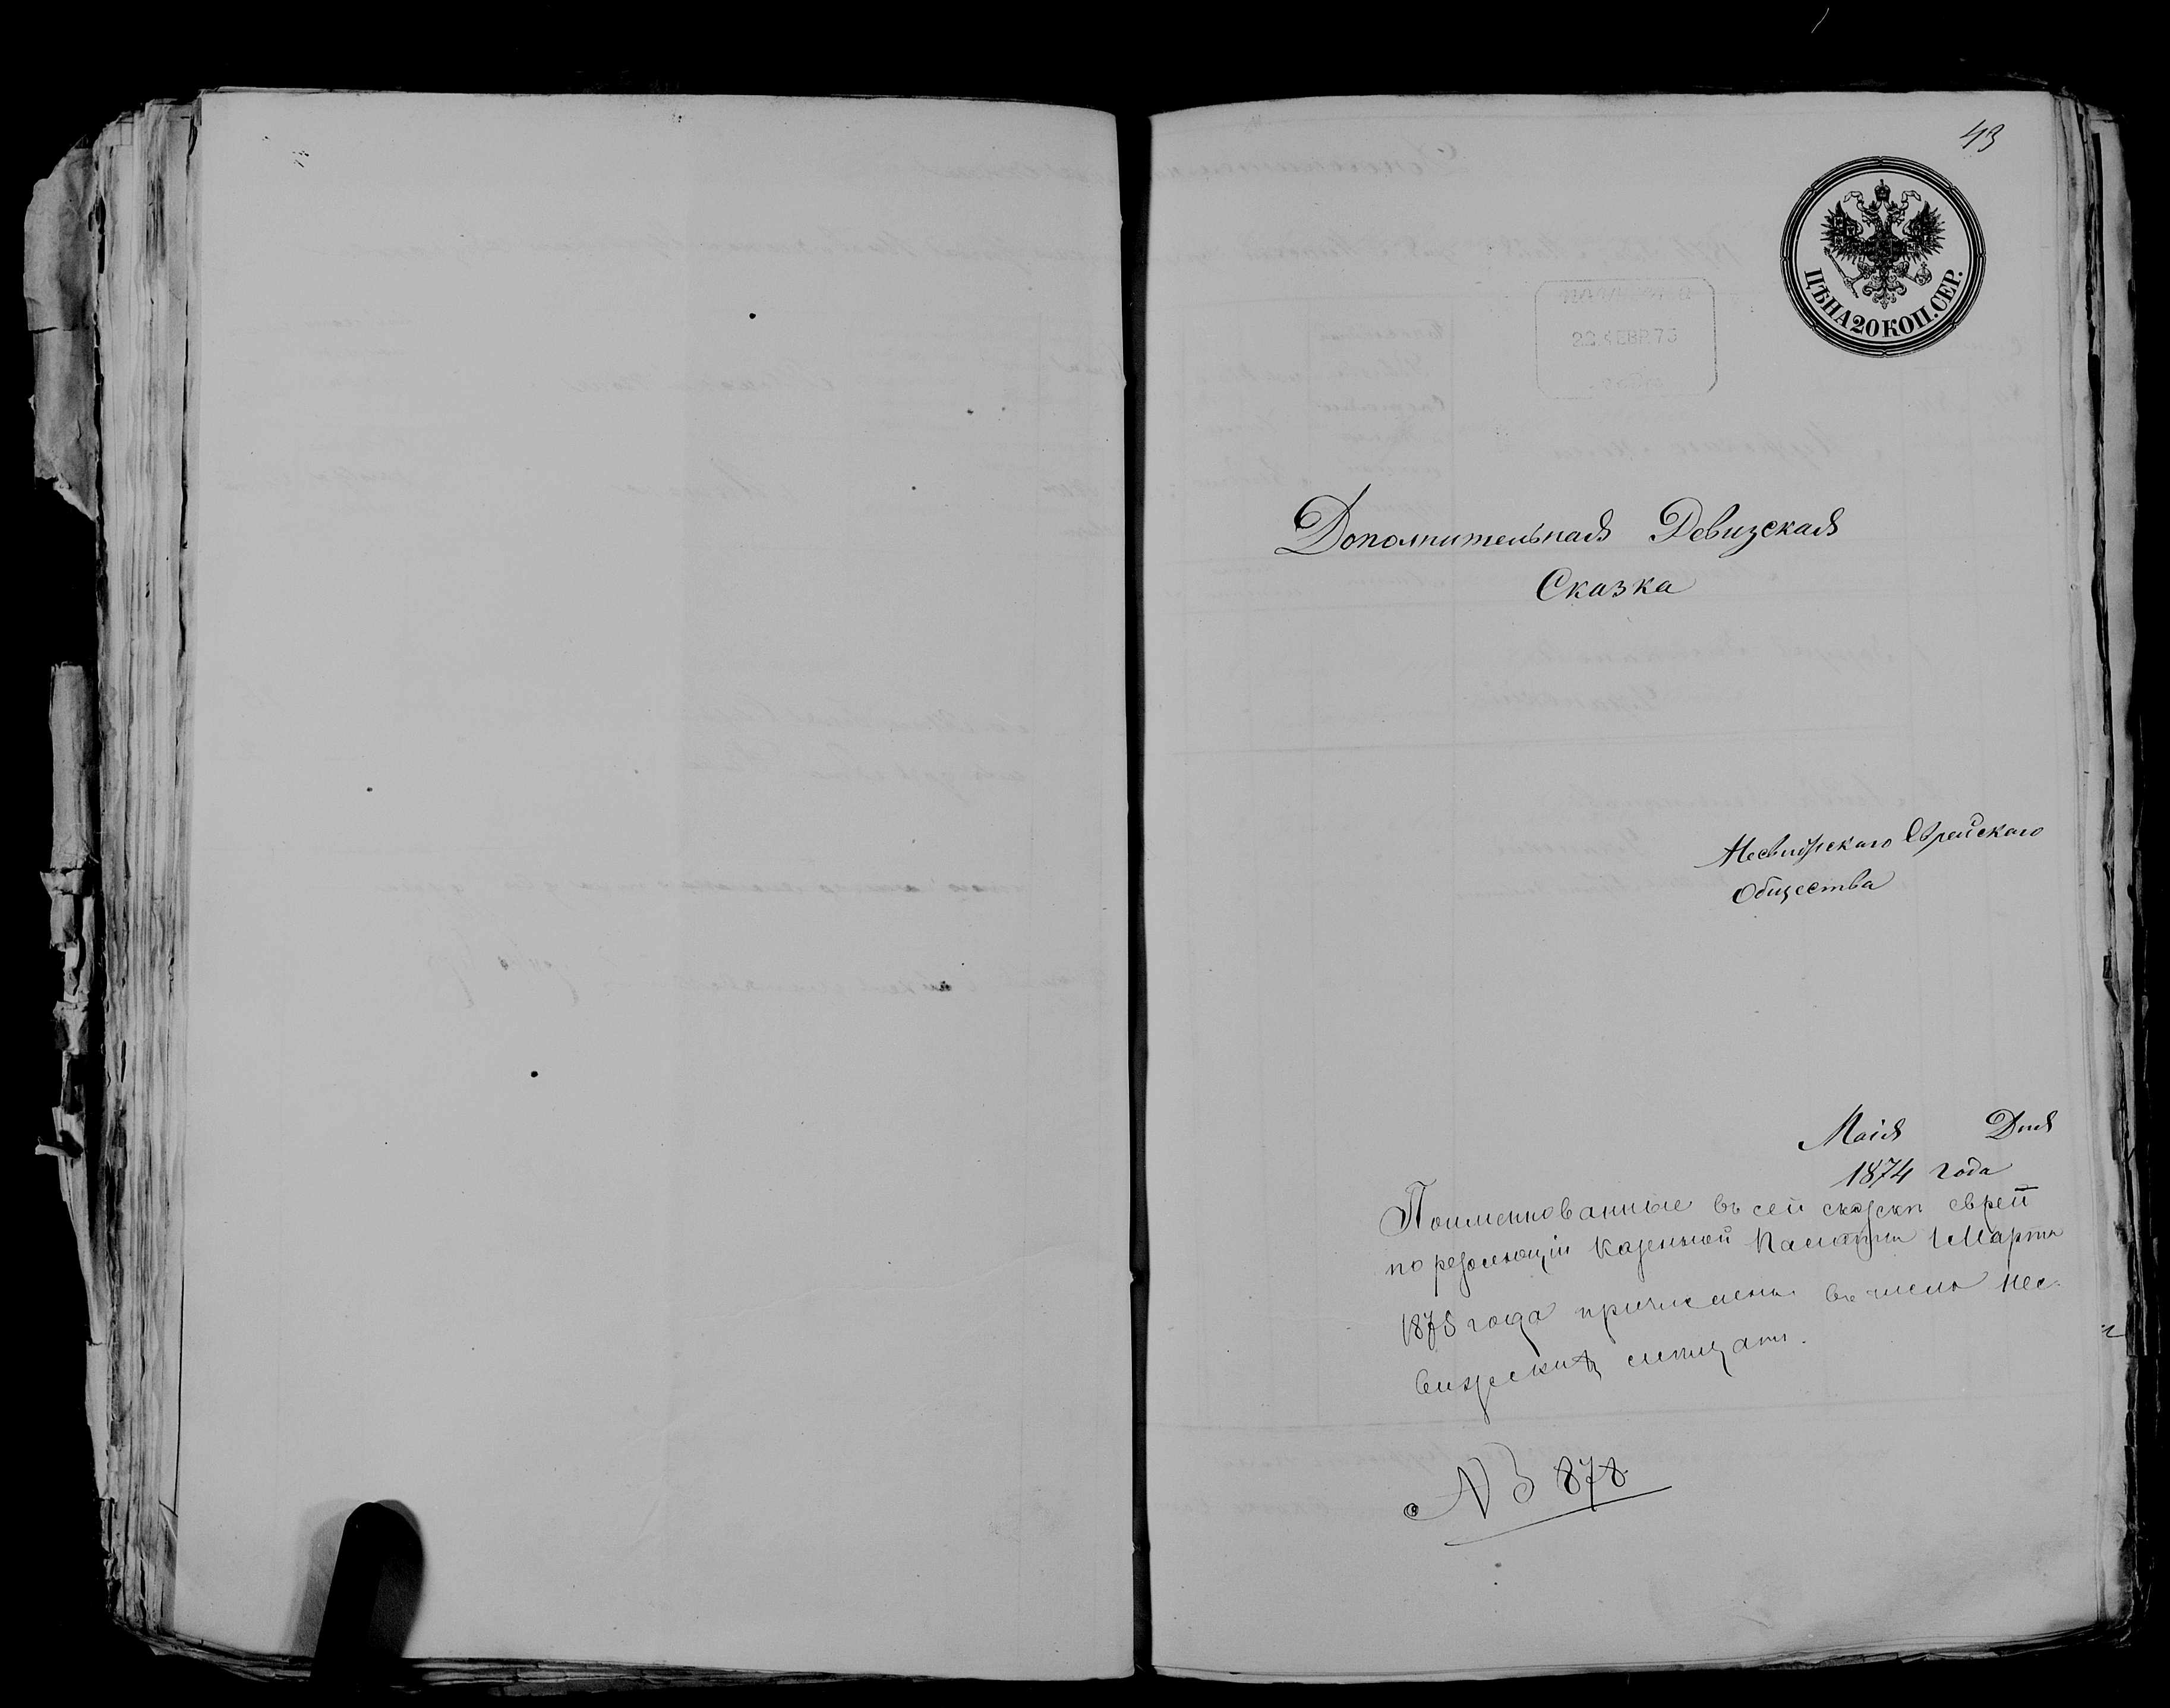 43
ЦѢНА 20 КОП. СЕР.
22 ФЕВР 75
Дополнительная Ревизская
Сказка
Несвижскаго Еврейскаго
Общества
Маія Дня
1874 года
Поименнованные въ сей скаски евреи
по резолюціи Казенной Палаты 1 Марта
1875 года причислены въ число Нес-
вижскихъ мещанъ.
№ 878